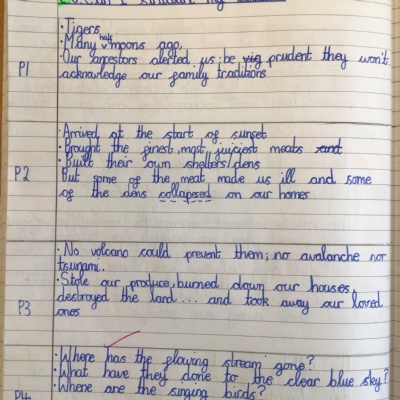 · Tigers
· Many half mpons ago,
P1
· Our ancestors alerted us; be prudent they won't
acknowledge our family traditions
· Arrived at the start of sunset
· Brought the finest, most juiciest meats
· Built their own shelters/dens
P2
But some of the meat made us ill and some
of the dens collapsed on our homes
· No volcano could prevent them; no avalanche nor
tsunami.
· Stole our produce, burned down our houses,
P3
destroyed the land... and took away our loved
ones
· Where has the flowing stream gone?
· What have they done to the clear blue sky?
· Where are the singing birds?
P4